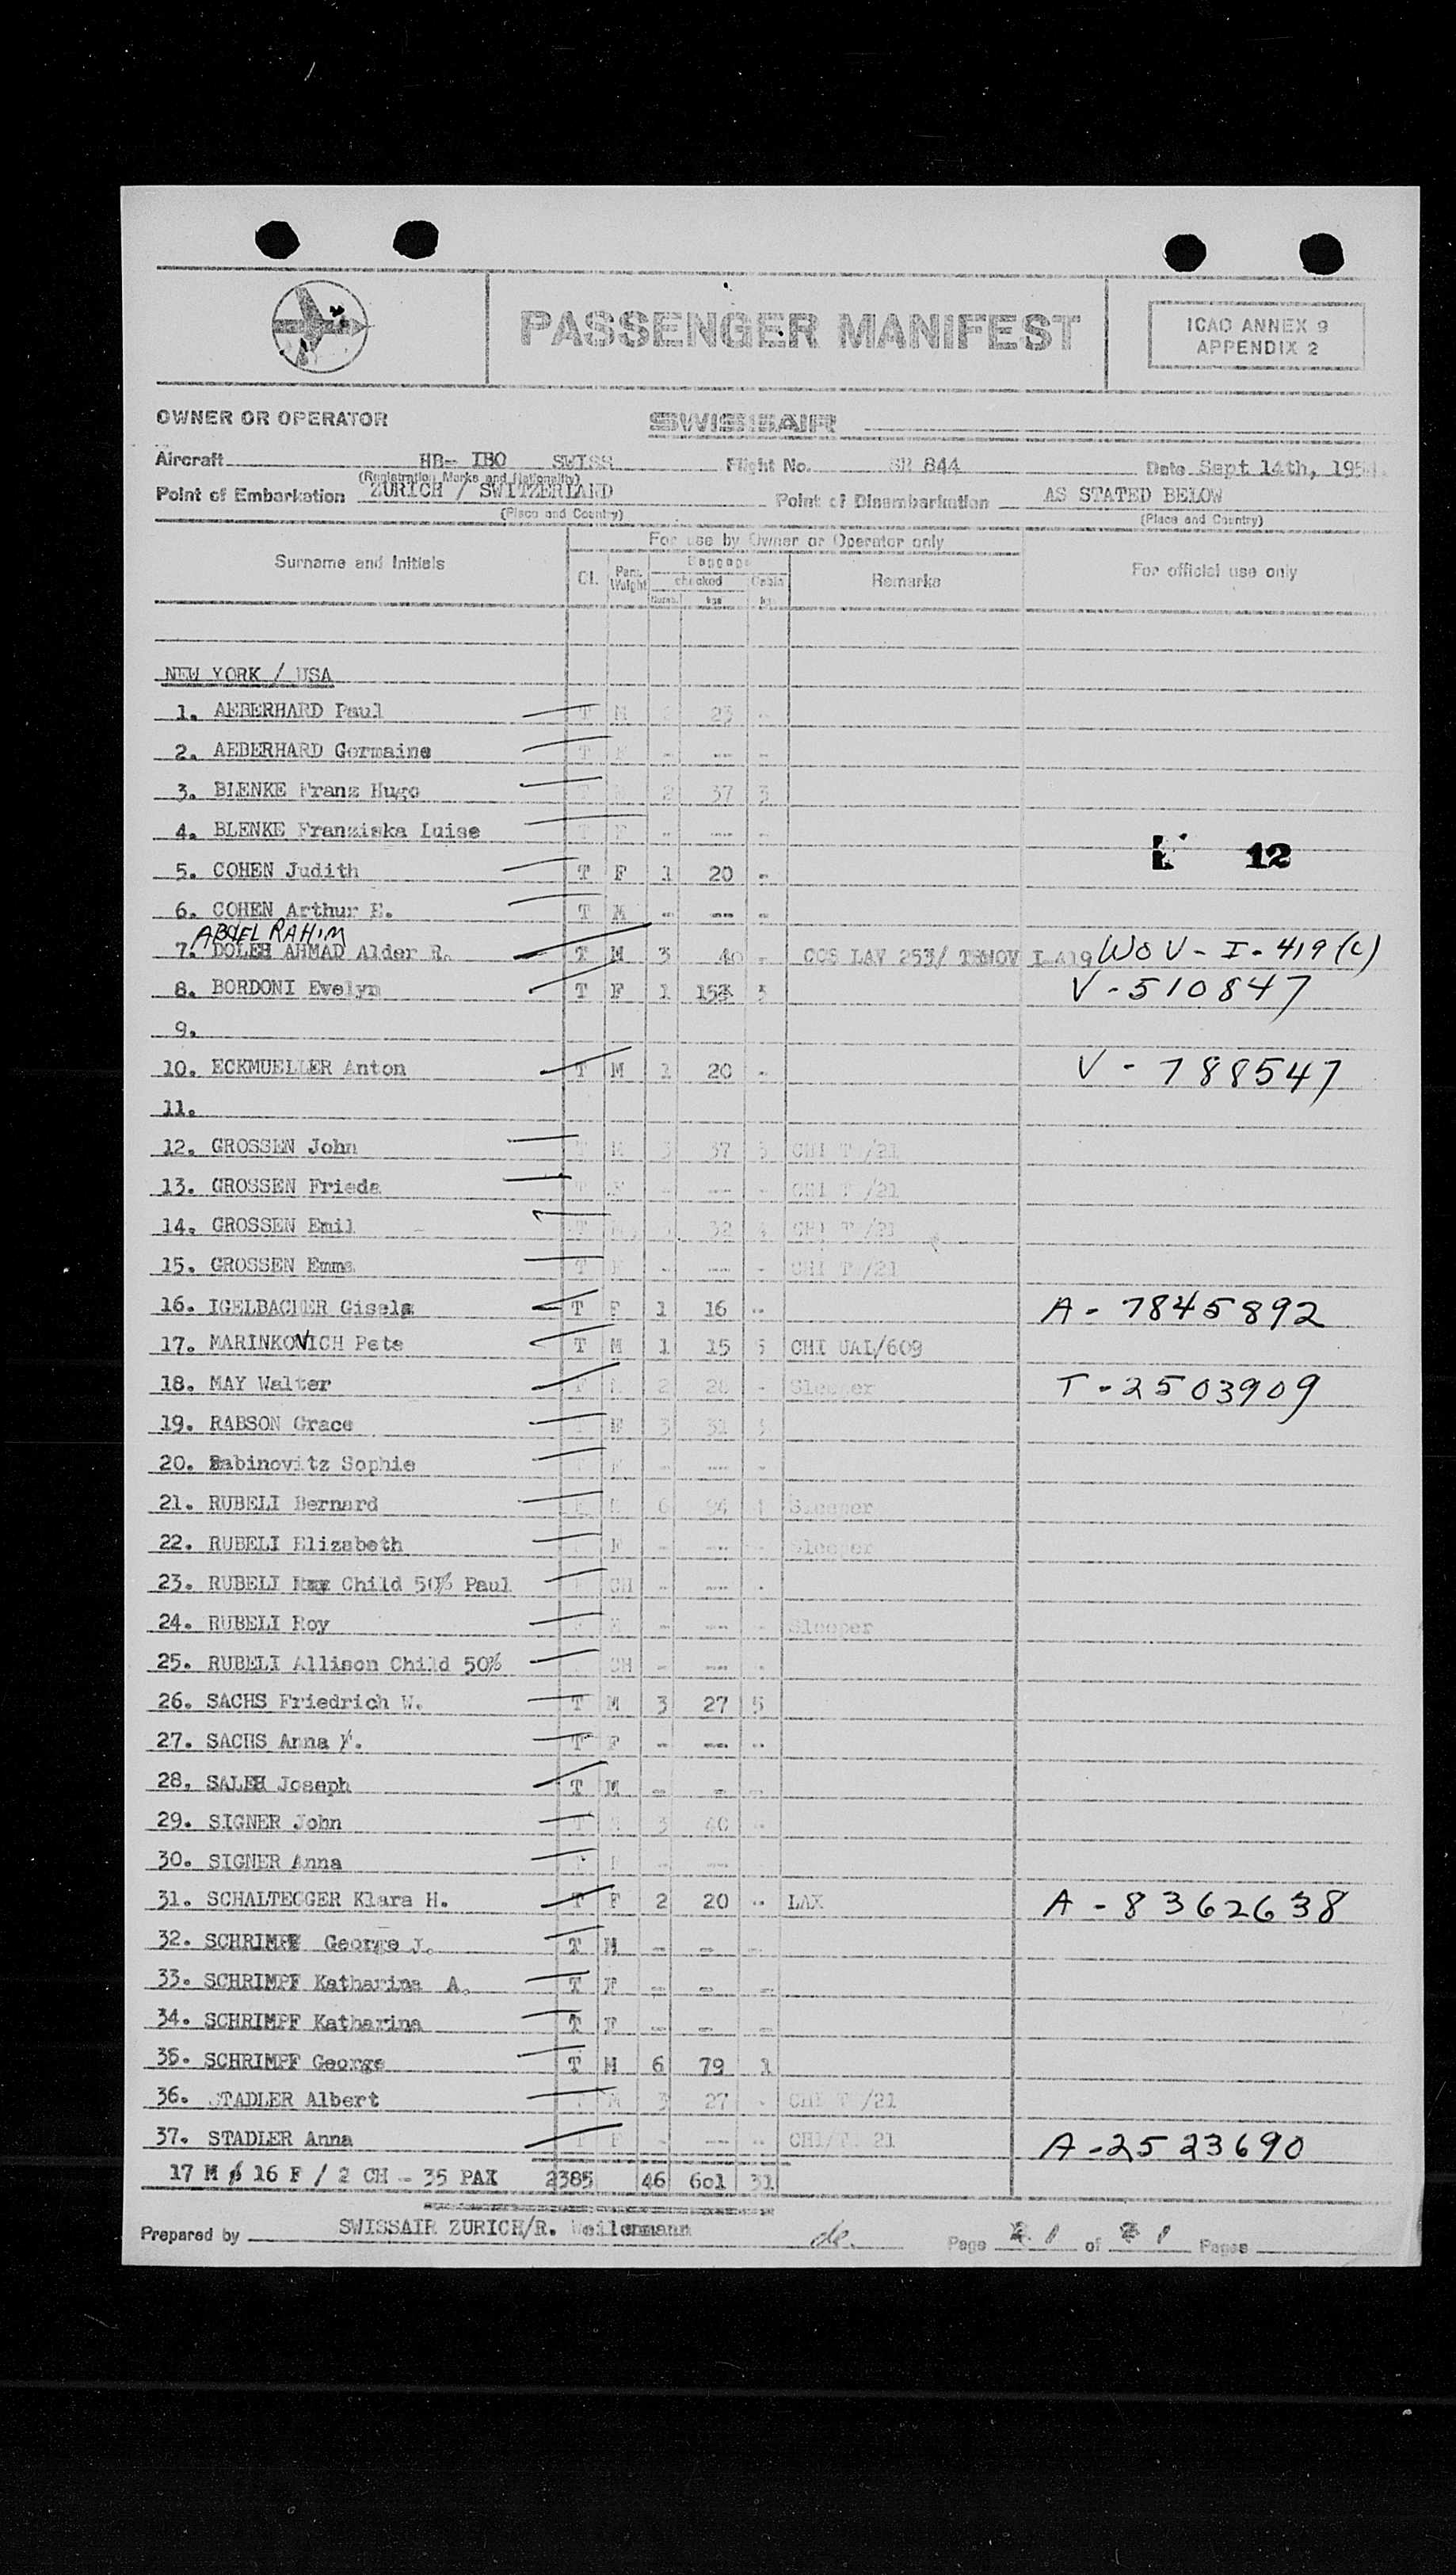 PASSENGER MANIFEST
ICAO ANNEX 9
APPENDIX 2
OWNER OR OPERATOR SWISSAIR
Aircraft HB- IBO SWISS Flight No. SR 844 Date Sept 14th, 195
(Registration Marks and Nationality)
Point of Embarkation ZURICH / SWITZERLAND Point of Disembarkation AS STATED BELOW
(Place and Country) (Place and Country)
For use by Owner or Operator only
Surname and Initials Cl. Pass. Weight Baggage checked Cabin Remarks For official use only
Numb. kgs kgs
NEW YORK / USA
1. AEBERHARD Paul T M 23 -
2. AEBERHARD Germaine T F - -- -
3. BLENKE Franz Hugo T M 2 37 3
4. BLENKE Franziska Luise T F - --- -
12
5. COHEN Judith T F 1 20 -
6. COHEN Arthur E. T M - -- -
ABDEL RAHIM
7. DOLEH AHMAD Alder R. T M 3 40 - COS LAV 253/ TRNOV I 419 WOV-I-419(C)
8. BORDONI Evelyn T F 1 15 3 V-510847
9.
10. ECKMUELLER Anton T M 1 20 - V-788547
11.
12. GROSSEN John T M 3 37 3 CHI T /21
13. GROSSEN Frieda T F - --- - CHI T /21
14. GROSSEN Emil T M 32 4 CHI T /21
15. GROSSEN Emma T F - --- - CHI T /21
16. IGELBACHER Gisela T F 1 16 - A-7845892
17. MARINKOVICH Pete T M 1 15 5 CHI UAL/609
18. MAY Walter F M 2 28 - Sleeper T-2503909
19. RABSON Grace F 3 31 3
20. Rabinovitz Sophie T F - --- -
21. RUBELI Bernard F M 6 94 1 Sleeper
22. RUBELI Elizabeth F F - --- - Sleeper
23. RUBELI Child 50% Paul F CH - --- -
24. RUBELI Roy F M - --- - Sleeper
25. RUBELI Allison Child 50% CH - --- -
26. SACHS Friedrich W. T M 3 27 5
27. SACHS Anna F. T F - --- -
28. SALEH Joseph T M - - -
29. SIGNER John T M 3 40 -
30. SIGNER Anna T F - ---
31. SCHALTEGGER Klara H. T F 2 20 - LAX A-8362638
32. SCHRIMPF George J. T M - - -
33. SCHRIMPF Katharina A. T F - - -
34. SCHRIMPF Katharina T F - - -
35. SCHRIMPF George T M 6 79 1
36. STADLER Albert T M 3 27 - CHI T /21
37. STADLER Anna T F - --- - CHI/T. 21 A-2523690
17 M / 16 F / 2 CH - 35 PAX 2385 46 601 31
Prepared by SWISSAIR ZURICH/R. Weilenmann de. Page 1 of 1 Pages